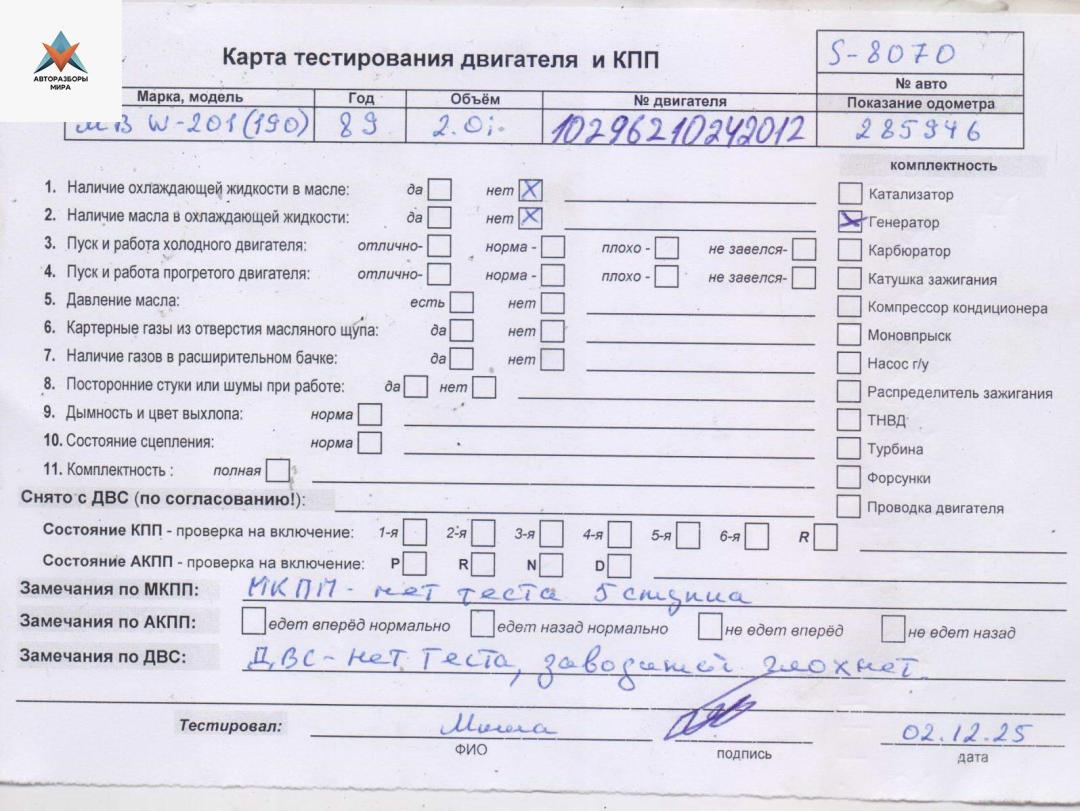 АВТОРАЗБОРЫ
МИРА
Карта тестирования двигателя и КПП
S-8070
№ авто
Марка, модель Год Объём № двигателя Показание одометра
МВ W-201(190) 89 2.0i. 10296210242012 285946
комплектность
1. Наличие охлаждающей жидкости в масле: да нет X
Катализатор
2. Наличие масла в охлаждающей жидкости: да нет X
X Генератор
3. Пуск и работа холодного двигателя: отлично- норма - плохо - не завелся-
Карбюратор
4. Пуск и работа прогретого двигателя: отлично- норма - плохо - не завелся-
Катушка зажигания
5. Давление масла: есть нет
Компрессор кондиционера
6. Картерные газы из отверстия масляного щупа: да нет
Моновпрыск
7. Наличие газов в расширительном бачке: да нет
Насос г/у
8. Посторонние стуки или шумы при работе: да нет
Распределитель зажигания
9. Дымность и цвет выхлопа: норма
ТНВД
10. Состояние сцепления: норма
Турбина
11. Комплектность : полная
Форсунки
Снято с ДВС (по согласованию!):
Проводка двигателя
Состояние КПП - проверка на включение: 1-я 2-я 3-я 4-я 5-я 6-я R
Состояние АКПП - проверка на включение: P R N D
Замечания по МКПП: МКПП - нет теста 5 ступка
Замечания по АКПП: едет вперёд нормально едет назад нормально не едет вперёд не едет назад
Замечания по ДВС: ДВС-нет теста, глохнет.
Тестировал: Миша 02.12.25
ФИО подпись дата